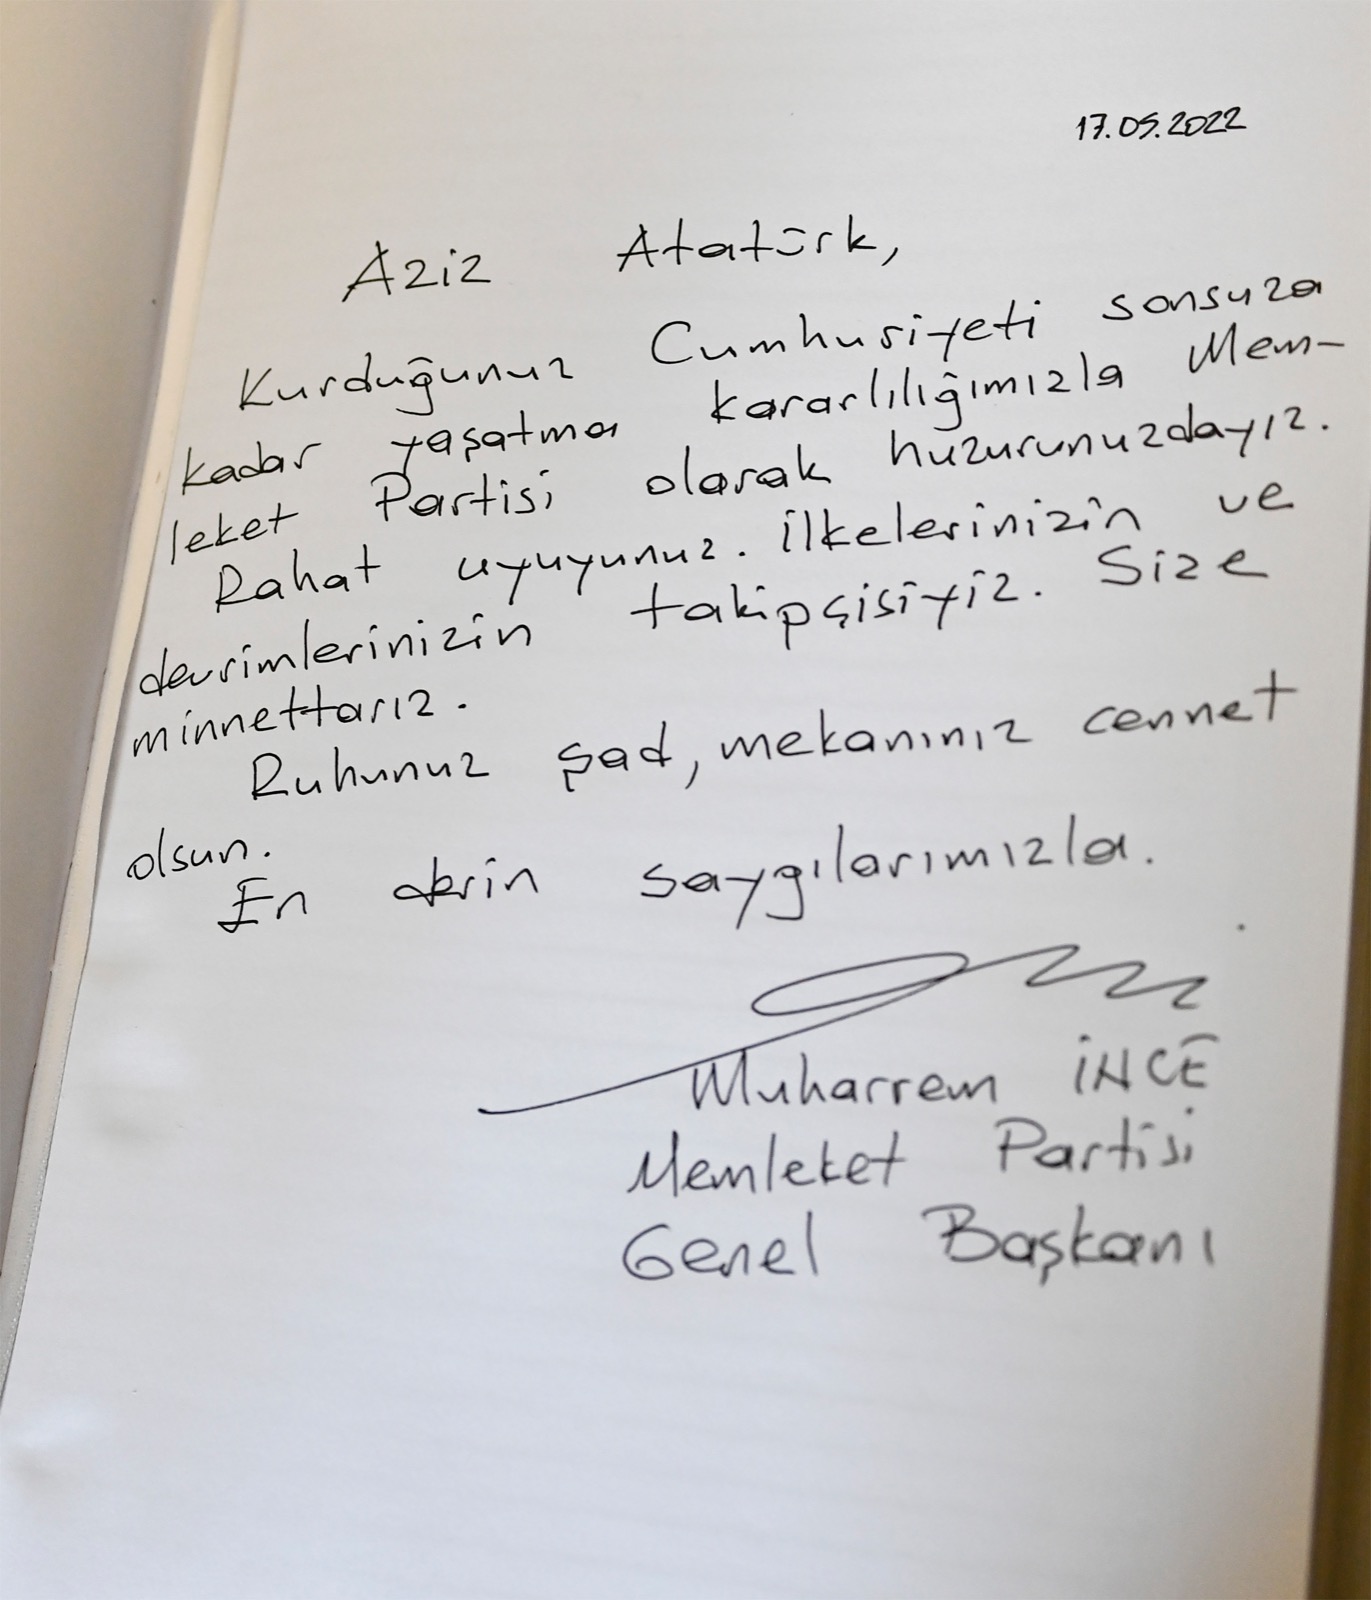 17.05.2022
Aziz Atatürk,
Kurduğunuz Cumhuriyeti sonsuza
kadar yaşatma kararlılığımızla Mem-
leket Partisi olarak huzurunuzdayız.
Rahat uyuyunuz. İlkelerinizin ve
devrimlerinizin takipçisiyiz. Size
minnettarız.
Ruhunuz şad, mekanınız cennet
olsun.
En derin saygılarımızla.
Muharrem İNCE
Memleket Partisi
Genel Başkanı